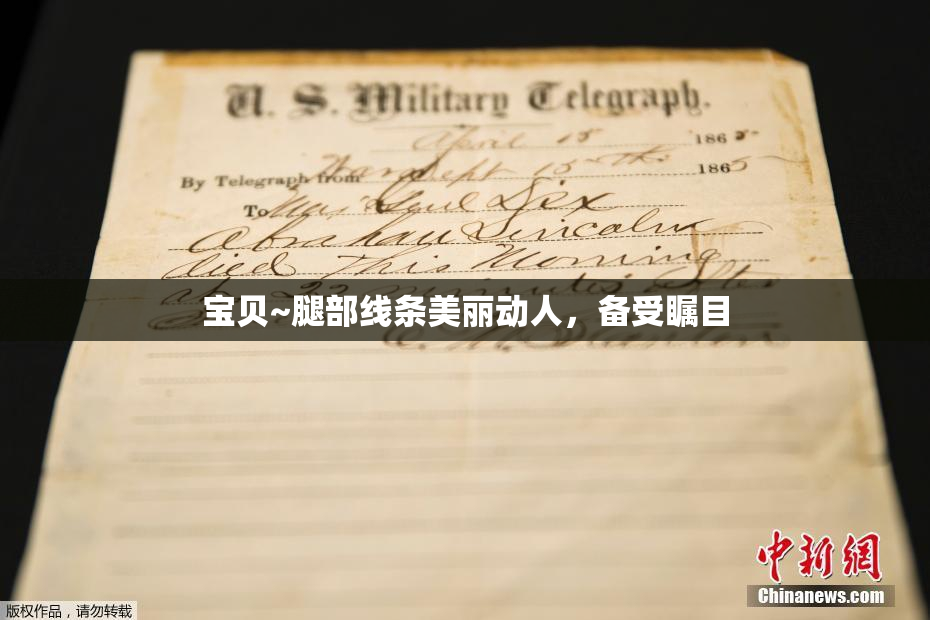 U. S. Military Telegraph.
April 15 1865
By Telegraph from War Dept 15th 1865
To Maj Genl Dix
Abraham Lincoln
died This Morning
at 22 minutes after
宝贝~腿部线条美丽动人，备受瞩目
E. M. Stanton
中新网
Chinanews.com
版权作品，请勿转载